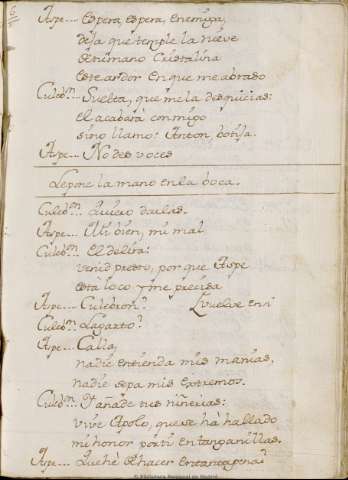 Aspe.... Espera, espera, enemiga,
deja que temple la nieve
de tu mano Cristalina
este ardor en que me abraso
Culebn.... Suelta, que me la desquicias:
el acabará conmigo
sino llamo: Anton botija.
Aspe.... No des voces
Lepone la mano en la boca.
Culebn.... Quiero darlas.
Aspe.... Mi bien, mi mal
Culebn.... El delira:
venid presto, por que Aspe
está loco y me precisa
Aspe.... Culebron? Vuelve en si
Culebn.... Lagarto?
Aspe.... Calla,
nadie entienda mis manias,
nadie sepa mis extremos.
Culebn.... Y añade tus niñerias:
vive Apolo, que se hà hallado
mi honor por ti en tanganillas.
Aspe.... Que hè de hacer en tanta pena?
© Biblioteca Nacional de España